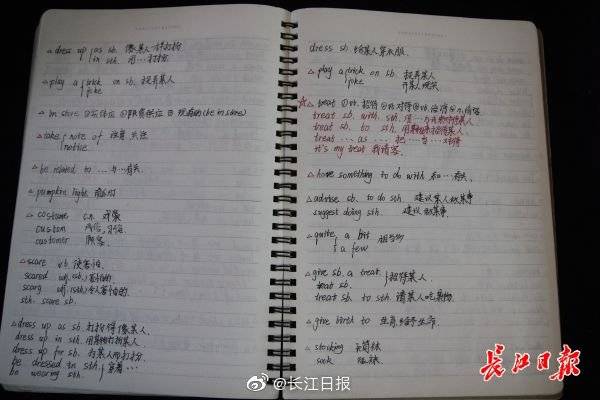 △ dress up as sb. 像某人一样打扮
in sth. 用…打扮
△ play a trick on sb. 捉弄某人
joke
△ in store
△ take note of 注意 关注
notice
△ be related to … 与…有关
△ pumpkin light 南瓜灯
△ costume c.n. 戏装
custom 风俗,习俗
customer 顾客
△ scare vb. 使害怕
scared adj. (sb.) 害怕的
scary adj. (sth) 令人害怕的
sth. scare sb.
△ dress up as sb. 打扮得像某人.
dress up in sth. 用某物打扮某人
dress up for sb. 为某人而打扮.
be dressed in sth 穿着…
be wearing sth
dress sb. 给某人穿衣服.
△ play a trick on sb. 捉弄某人
joke 开某人玩笑
☆ treat
treat sb. with sth.
treat sb. to sth.
treat … as … 把…当…对待
it's my treat 我请客.
△ have something to do with 和…有关.
△ advise sb. to do sth. 建议某人做某事
suggest doing sth. 建议做某事
△ quite a bit 相当多
a few
△ give sb. a treat 招待某人.
treat sb.
treat sb. to sth. 请某人吃某物.
△ give birth to 生育 给予生命
△ stocking 长筒袜
sock 短袜
@长江日报
长江日报